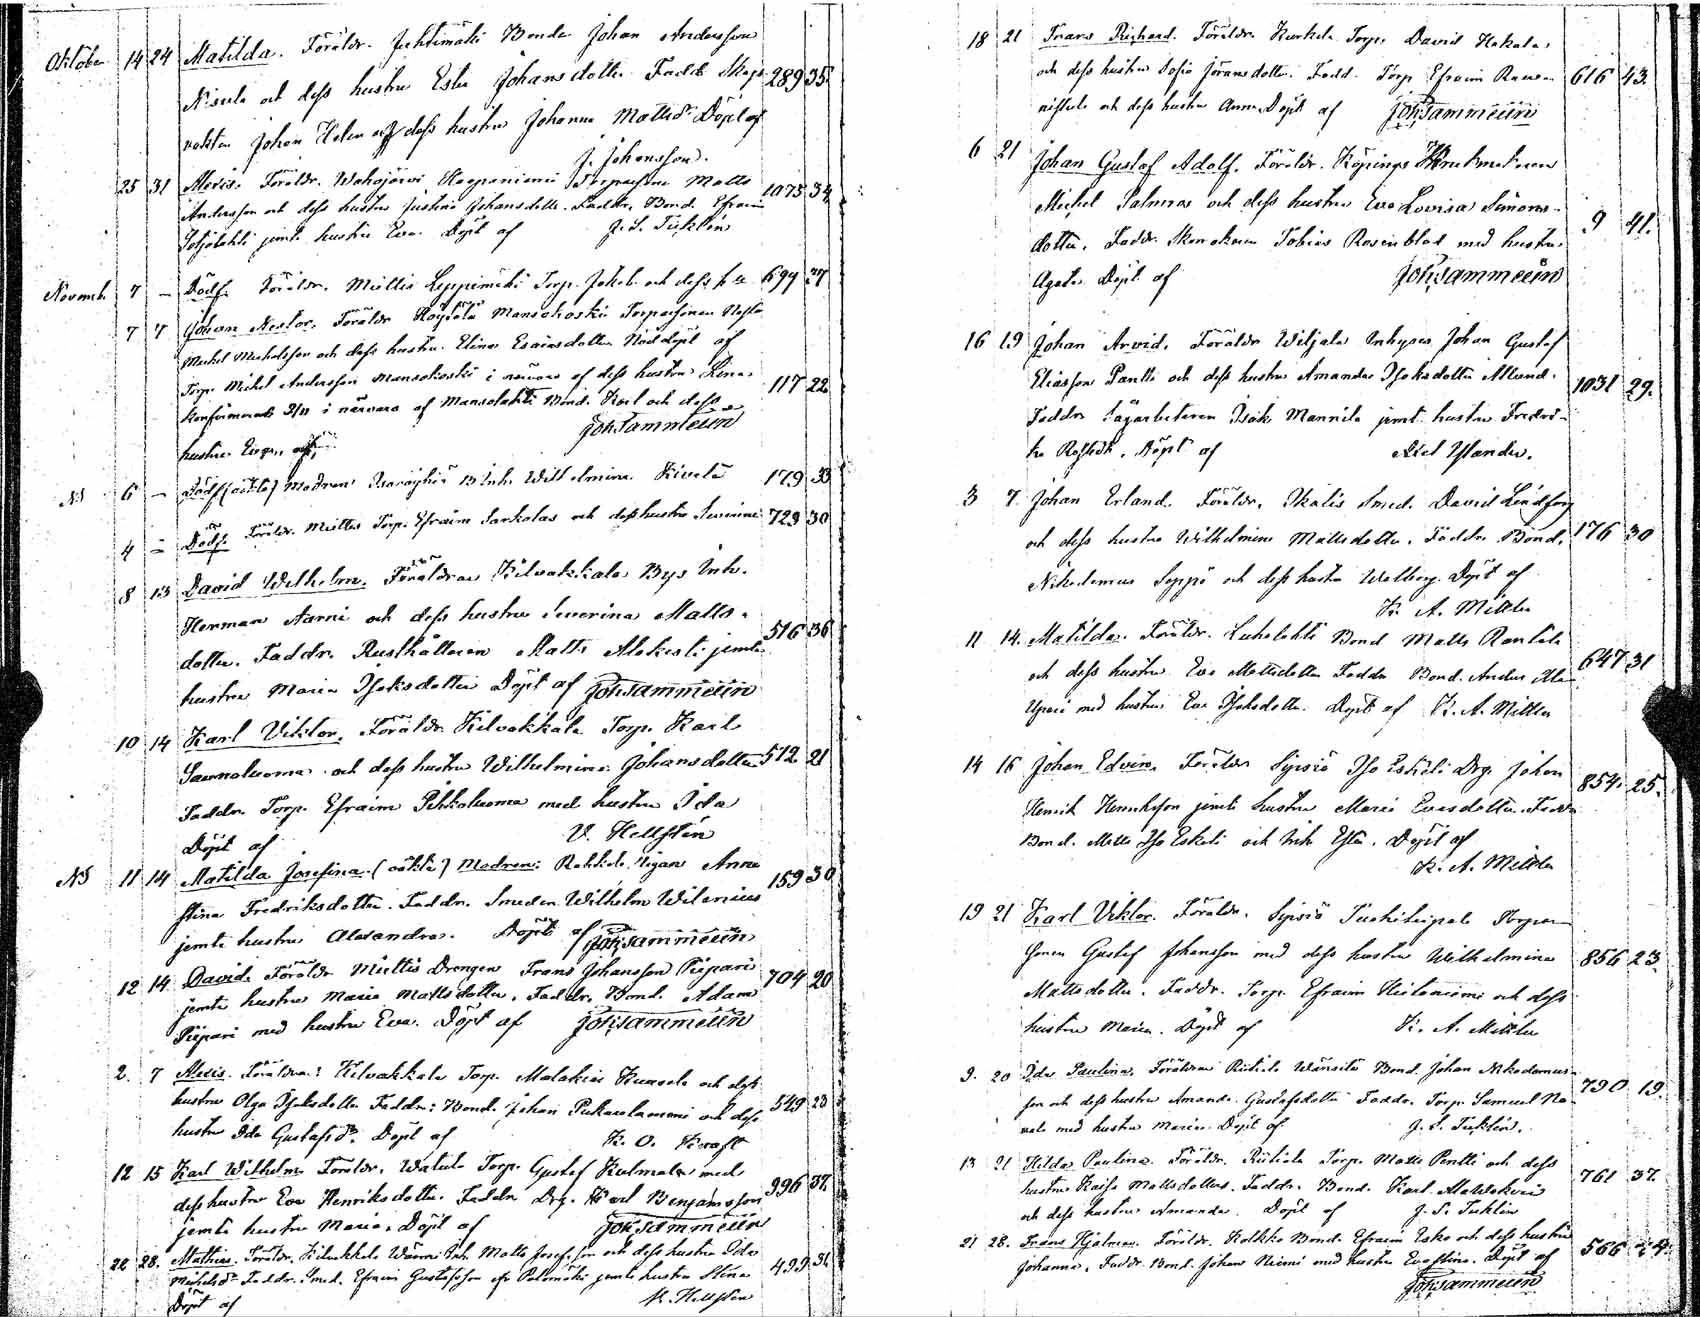 Oktober 14 24 Matilda. Föräldr. Juhtimäki Bonde Johan Andersson
Nisula och dess hustru Ester Johansdotter Faddr. Skogs- 289 35
vakten Johan Helen och dess hustru Johanna Mattsdr Döpt af
J. Johansson.
25 31 Alexis. Föräldr. Wahojärvi Haapaniemi Torparsonen Matts 1073 34
Andersson och dess hustru Justina Johansdotter. Faddr. Bond. Efraim
jemte hustru Eva. Döpt af J. S. Ticklén
Novemb. 7 — Dödf. Föräldr. Miettis Leppimäki Torp. Jakob och dess h-u 699 37
7 7 Johan Nestor. Föräldr. Mansohoski Torparsonen
Mickel Mickelsson och dess hustru Elina Esaiasdotter Nöddöpt af
Torp. Mickel Andersson Mansohoski i närvaro af dess hustru Lena. 117 22
Konfirmerad i närvaro af Mansolahti Bond. Karl och dess
hustru Eva, af Joh. Sammelin
NB 6 — Dödf. (oäkta) Modren: B. Inh. Wilhelmina Kivelä 179 33
4 — Dödf. Föräldr. Miettis Torp. Efraim Sarkolas och dess hustru Severina 729 30
8 13 David Wilhelm. Föräldrar Kilvakkala Bys Inh.
Herman Aarni och dess hustru Severina Matts-
dotter. Faddr. Rusthållaren Matts Alakesti jemte 516 36
hustru Maria Isaksdotter Döpt af Joh. Sammelin
10 14 Karl Viktor. Föräldr. Kilvakkala Torp. Karl
Saunaluoma och dess hustru Wilhelmina Johansdotter 512 21
Faddr. Torp. Efraim Pehkoluoma med hustru Ida
Döpt af V. Hellstén
NB 11 14 Matilda Josefina. (oäkta) Modren: Pigan Anna
Stina Fredriksdotter. Faddr. Smeden Wilhelm Wilenius 159 30
jemte hustru Alexandra. Döpt af Joh. Sammelin
12 14 David. Föräldr. Miettis Drengen Frans Johansson Piipari 704 20
jemte hustru Maria Mattsdotter. Faddr. Bond. Adam
Piipari med hustru Eva. Döpt af Joh. Sammelin
2. 7 Alexis. Föräldrar: Kilvakkala Torp. Malakias Kuusela och dess
hustru Olga Isaksdotter Faddr: Bond. Johan och dess 549 23
hustru Ida Gustafsdr. Döpt af K. O. Kraft
12 15 Karl Wilhelm Föräldr. Watula Torp. Gustaf Kulmala med
dess hustru Eva Henriksdotter. Faddr. Drg. Karl Benjamsson 996 37.
jemte hustru Maria. Döpt af Joh. Sammelin
22 28. Mathias. Föräldr. Kilvakkala Inh. Matts Josefsson och dess hustru Ida
Mickelsdr Faddr. Smed. Efraim Gustafsson jemte hustru Stina 499 31
Döpt af V. Hellstén
18 21 Frans Richard. Föräldr. Kurkela Torp. David Hakala,
och dess hustru Sofia Göransdotter. Fadd. Torp. Efraim 616 43.
och dess hustru Anna. Döpt af Joh. Sammelin
6 21 Johan Gustaf Adolf. Föräldr. Köpings
Michel Salmeras och dess hustru Eva Lovisa Simons-
dotter. Faddr. Tobias Rosenblad med hustru 9 41.
Agata Döpt af Joh. Sammelin
16 19 Johan Arvid. Föräldr. Wiljala Inhyses Johan Gustaf
Eliasson Pantti och dess hustru Amanda Isaksdotter 1031 29.
Faddr. Sågarbetaren Isak Mannila jemte hustru Fredri-
ka Döpt af Axel Ylander.
3 7. Johan Erland. Föräldr. Ikalis Smed. David Lindfors
och dess hustru Wilhelmina Mattsdotter. Faddr. Bond. 176 30
Nikodemus Seppä och dess hustru Walborg. Döpt af
K. A. Mittler
11 14. Matilda. Föräldr. Luhalahti Bond Matts Rantala
och dess hustru Eva Mattsdotter Faddr. Bond. Anders 647 31
med hustru Eva Isaksdotter. Döpt af K. A. Mittler
14 16 Johan Edvin. Föräldr. Sipsiö Iso Eskeli Drg. Johan 854. 25.
Henrik Henriksson jemte hustru Maria Evasdotter. Faddr.
Bond. Matts Iso Eskeli och Inh. Ester. Döpt af
K. A. Mittler
19 21 Karl Viktor. Föräldr. Sipsiö Torpar-
sonen Gustaf Johansson med dess hustru Wilhelmina 856 23.
Mattsdotter. Faddr. Torp. Efraim Hietaniemi och dess
hustru Maria. Döpt af K. A. Mittler
9. 20 Ida Paulina. Föräldrar Riitiala Bond. Johan Nikodemus-
son och dess hustru Amanda Gustafsdotter Faddr. Torp. Samuel 790 19.
med hustru Maria. Döpt af J. S. Ticklén.
13 21 Hilda Paulina. Föräldr. Riitiala Torp. Matts Pentti och dess
hustru Kaisa Mattsdotter. Faddr. Bond. Karl 761 37.
och dess hustru Amanda. Döpt af J. S. Ticklén
21 28. Frans Hjalmar. Föräldr. Kolkko Bond. Efraim Esko och dess hustru
Johanna, Faddr. Bond. Johan Niemi med hustru Eva Stina. Döpt af 566 24.
Joh. Sammelin